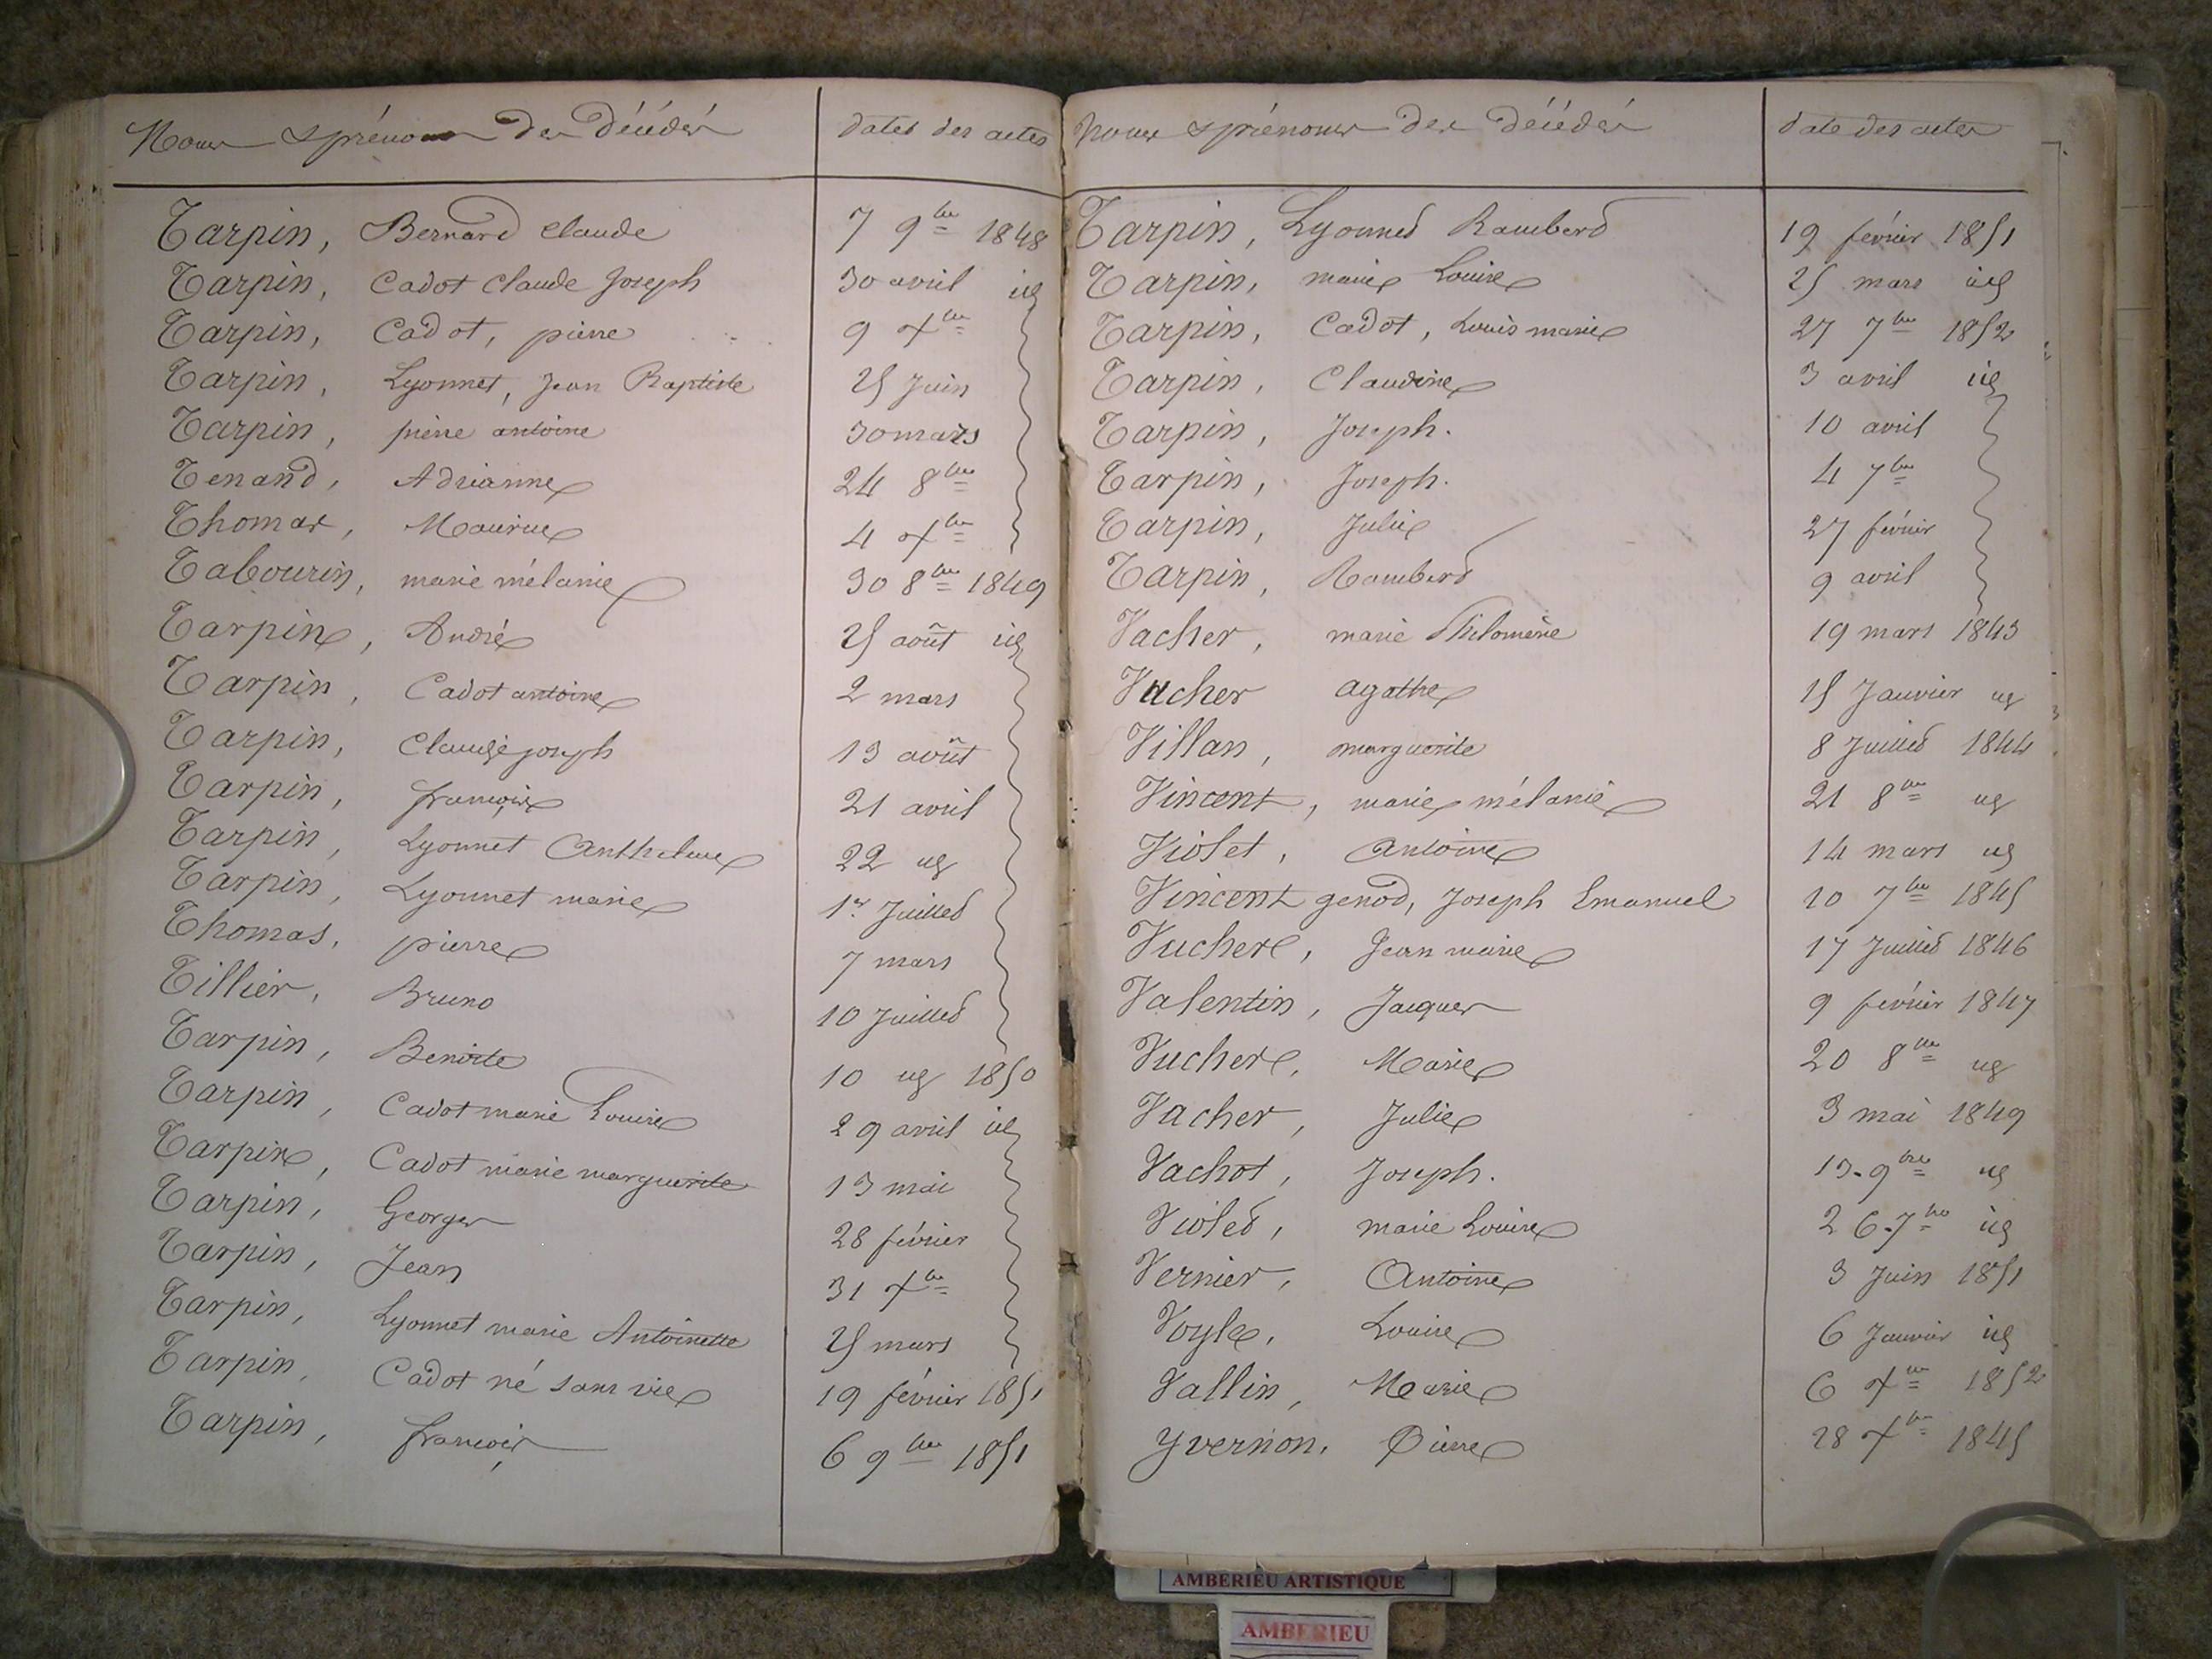 Noms & prénoms des décédés dates des actes
Tarpin, Bernard Claude 7 9bre 1848
Tarpin, Cadot Claude Joseph 30 avril id
Tarpin, Cadot, pierre 9 Xbre
Tarpin, Lyonnet, Jean Baptiste 25 Juin
Tarpin, pierre antoine 30 mars
Tenand, Adrianne 24 8bre
Thomas, Maurice 4 Xbre
Tabourin, marie mélanie 30 8bre 1849
Tarpin, André 25 août id
Tarpin, Cadot antoine 2 mars
Tarpin, Claude joseph 13 août
Tarpin, françois 21 avril
Tarpin, Lyonnet Anthelme 22 id
Tarpin, Lyonnet marie 1er Juillet
Thomas, pierre 7 mars
Tillier, Bruno 10 Juillet
Tarpin, Benoite 10 id 1850
Tarpin, Cadot marie Louise 29 avril id
Tarpin, Cadot marie marguerite 13 mai
Tarpin, Georges 28 février
Tarpin, Jean 31 Xbre
Tarpin, Lyonnet marie Antoinette 25 mars
Tarpin, Cadot né sans vie 19 février 1851
Tarpin, françois 6 9bre 1851
Noms & prénoms des décédés date des actes
Tarpin, Lyonnet Rambert 19 février 1851
Tarpin, marie Louise 25 mars id
Tarpin, Cadot, Louis marie 27 7bre 1852
Tarpin, Claudine 3 avril id
Tarpin, Joseph. 10 avril
Tarpin, Joseph. 4 7bre
Tarpin, Julie 27 février
Tarpin, Rambert 9 avril
Vacher, marie Philomène 19 mars 1843
Vucher agathe 15 Janvier id
Villan, marguerite 8 Juillet 1844
Vincent, marie mélanie 21 8bre id
Violet, Antoine 14 mars id
Vincent genod, Joseph Emanuel 10 7bre 1845
Vuchere, Jean marie 17 Juillet 1846
Valentin, Jacques 9 février 1847
Vuchere, Marie 20 8bre id
Vacher, Julie 3 mai 1849
Vachot, Joseph. 13-9bre id
Violet, marie Louise 26-7bre id
Vernier, Antoine 3 Juin 1851
Voyle, Louise 6 Janvier id
Vallin, Marie 6 Xbre 1852
Yvernon, Pierre 28 Xbre 1845
AMBERIEU ARTISTIQUE
AMBERIEU